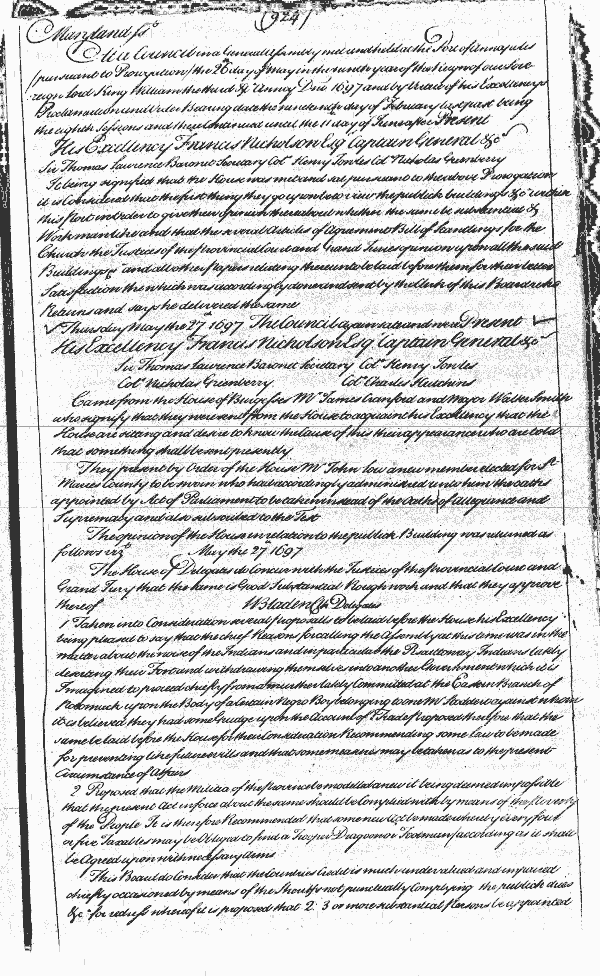 (924)
Maryland ss
At a Council in a General Assembly met and held at the Port of Annapolis
pursuant to Prorogation the 26 day of May in the ninth year of the Reign of our Sove
reign Lord King William the third &c Annoq Dni 1697 and by virtue of his Excellencys
Proclamation under Order bearing date the nineteenth day of February last past being
the eighth Sessions and there Continued until the 11 day of June after Present
His Excellency Francis Nicholson Esq Captain General &c
Sir Thomas Lawrence Baronet Secretary Col Henry Jowles Col Nicholas Greenberry
It being signified that the House was met and sat pursuant to the above Prorogation
it is Considered that the first thing they go upon be to view the publick buildings &c within
this Port in order to give their opinion thereabout whether the same be substantial &
Workmanlike and that the several Articles of Agreement Bill of Landings for the
Church the Justices of the Provincial Court and Grand Juries opinion upon all the said
Buildings and all other papers relating thereunto be laid before them for their better
Satisfaction the which was accordingly done and sent by the Clerk of this Board who
Returns and says he delivered the same
Thursday May the 27 1697 The Council again sate and were Present
His Excellency Francis Nicholson Esq Captain General &c
Sir Thomas Lawrence Baronet Secretary Col Henry Jowles
Col Nicholas Greenberry Col Charles Hutchins
Came from the House of Burgesses Mr James Cranford and Major Walter Smith
who signify that they were sent from the House to acquaint his Excellency that the
House are sitting and desire to know the cause of this their appearance who are told
that something shall be sent presently
They present by Order of the House Mr John Low a new member elected for St
Maries County to be sworn who had accordingly administred unto him the oaths
appointed by Act of Parliament to be taken instead of the oaths of allegiance and
Supremacy and also subscribed to the Test
The opinion of the House in relation to the publick Building was returned as
follows viz May the 27 1697
The House of Delegates do Concur with the Justices of the Provincial Court and
Grand Jury that the same is Good Substantial Rough work and that they approve
thereof W Bladen Clk Delegates
1 Taken into Consideration several proposalls to be laid before the House his Excellency
being pleased to say that the chief Reasons for calling the Assembly at this time was in the
matter about the noise of the Indians and in particular the Piscattoway Indians lately
deserting their Fort and withdrawing themselves into another Government which it is
Imagined to proceed chiefly from a murther lately Committed at the Eastern Branch of
Potomack upon the Body of a Certain Negro Boy belonging to one Mr against whom
it is believed they had some Grudge upon the Account of Trade Proposed therefore that the
same be laid before the House for their Consideration Recommending some law to be made
for preventing like future evills and that some measures may be taken as to the present
Circumstance of Affairs
2 Proposed that the Militia of the province be modelled anew it being deemed impossible
that the present Act in force about the same should be Complied with by means of the poverty
of the People It is therefore Recommended that some new Act be made whereby every four
or five Taxables may be Obliged to find a Trooper Dragoon or Footman according as it shall
be Agreed upon with necessary Arms
This Board do Consider that the Countries Credit is much undervalued and impaired
chiefly occasioned by means of the Sheriffs not punctually Complying the publick dues
&c for redress whereof it is proposed that 2: 3 or more substantial Persons be appointed